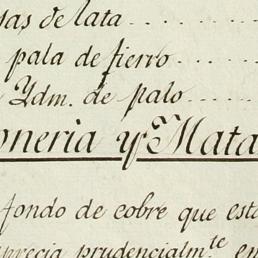 sas de lata.....
pala de fierro.....
Ydm. de palo......
oneria y Mata
fondo de cobre que esta
aprecia prudencialm.te en